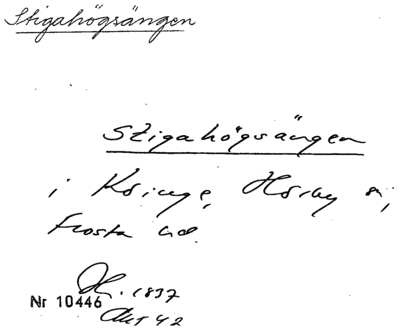 Stigahögsängen
Stigahögsängen
i Kringe, Hörby sn,
Frosta hd.
H. 1837
Nr 10446
Akt 42